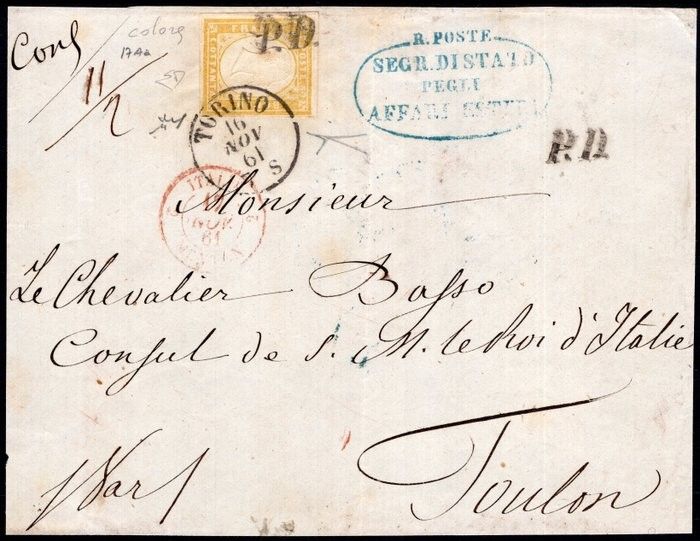 Cons
colore
17Aa
SD
11/2
P.D.
R. POSTE
SEGR. DI STATO
PEGLI
AFFARI ESTERI
TORINO
16
NOV
61
S
P.D.
ITALIE
NOV
61
Monsieur
Le Chevalier Basso
Consul de S. M. le Roi d'Italie
Toulon
(Var)